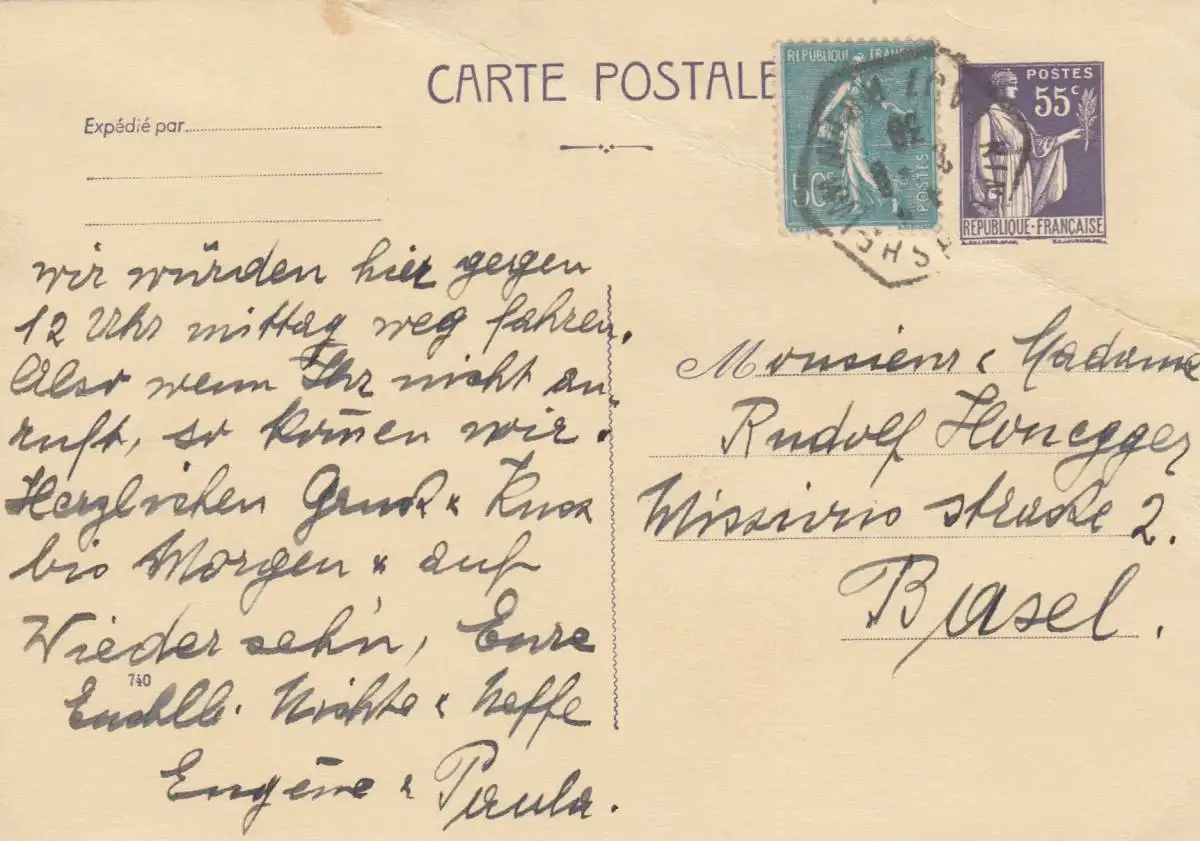 CARTE POSTALE
Expédié par
REPUBLIQUE FRANC
50c
POSTES
POSTES
55c
REPUBLIQUE-FRANÇAISE
wir würden hier gegen
12 Uhr mittag weg fahren.
Also wenn Ihr nicht an-
ruft, so kom̄en wir.
Herzlichen Gruss & Kuss
bis Morgen & auf
Wiedersehn, Eure
740
Nichte & Neffe
Eugène & Paula.
Monsieur & Madame
Rudolf Honegger
Missions strasse 2.
Basel.